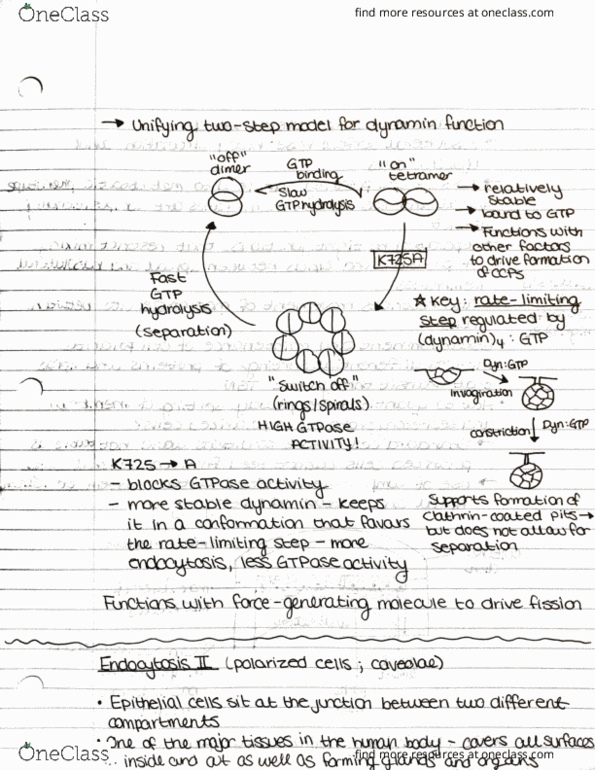 OneClass
find more resources at oneclass.com
→ Unifying two-step model for dynamin function
"off"
dimer
GTP
binding
Slow
GTP hydrolysis
"on"
tetramer
→ relatively
stable
→ bound to GTP
→ Functions with
other factors
to drive formation
of CCPs
K725A
Fast
GTP
hydrolysis
(separation)
"switch off"
(rings/spirals)
HIGH GTPase
ACTIVITY!
☆ Key: rate-limiting
step regulated by
(dynamin)4 : GTP
Dyn:GTP
invagination
constriction
Dyn:GTP
Supports formation of
clathrin-coated pits →
but does not allow for
separation
K725 → A
- blocks GTPase activity
- more stable dynamin - keeps
it in a conformation that favors
the rate-limiting step - more
endocytosis, less GTPase activity
Functions with force-generating molecule to drive fission
Endocytosis II (polarized cells ; caveolae)
• Epithelial cells sit at the junction between two different
compartments
• One of the major tissues in the human body - covers all surfaces
inside and out as well as forming glands and organs
OneClass
find more resources at oneclass.com